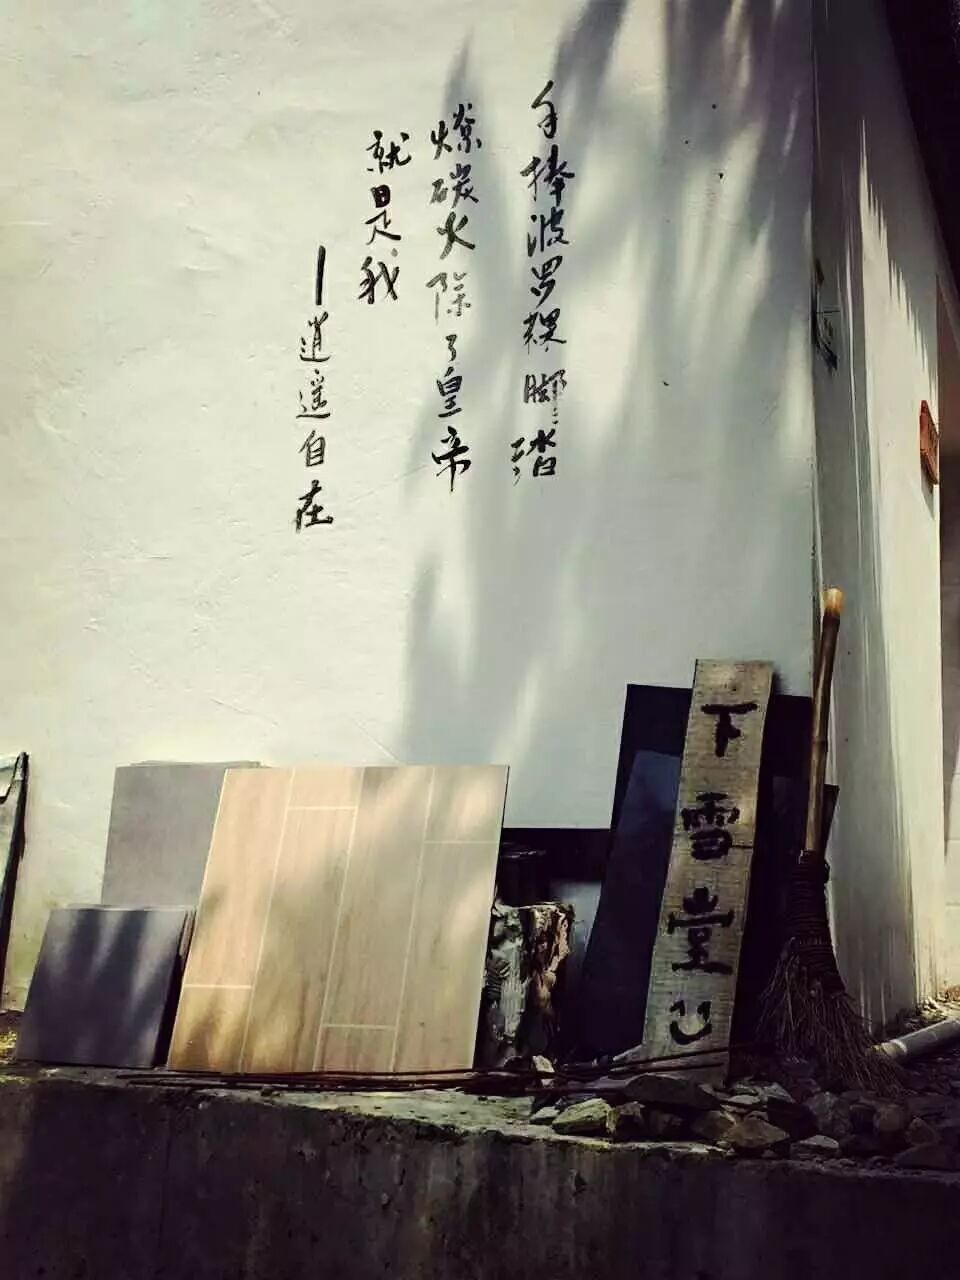 手捧波罗粿脚踏
燎碳火除了皇帝
就是我
—逍遥自在
下雪堂